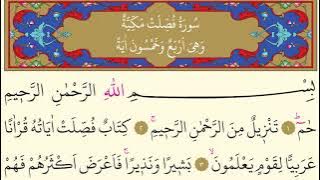 سُورَةُ فُصِّلَتْ مَكِّيَّةٌ
وَهِيَ اَرْبَعٌ وَخَمْسُونَ اٰيَةً
بِسْمِ اللّٰهِ الرَّحْمٰنِ الرَّحٖيمِ
حٰمٓ ﴿١﴾ تَنْزٖيلٌ مِنَ الرَّحْمٰنِ الرَّحٖيمِۚ ﴿٢﴾ كِتَابٌ فُصِّلَتْ اٰيَاتُهُ قُرْاٰنًا
عَرَبِيًّا لِقَوْمٍ يَعْلَمُونَۙ ﴿٣﴾ بَشٖيرًا وَنَذٖيرًاۚ فَاَعْرَضَ اَكْثَرُهُمْ فَهُمْ